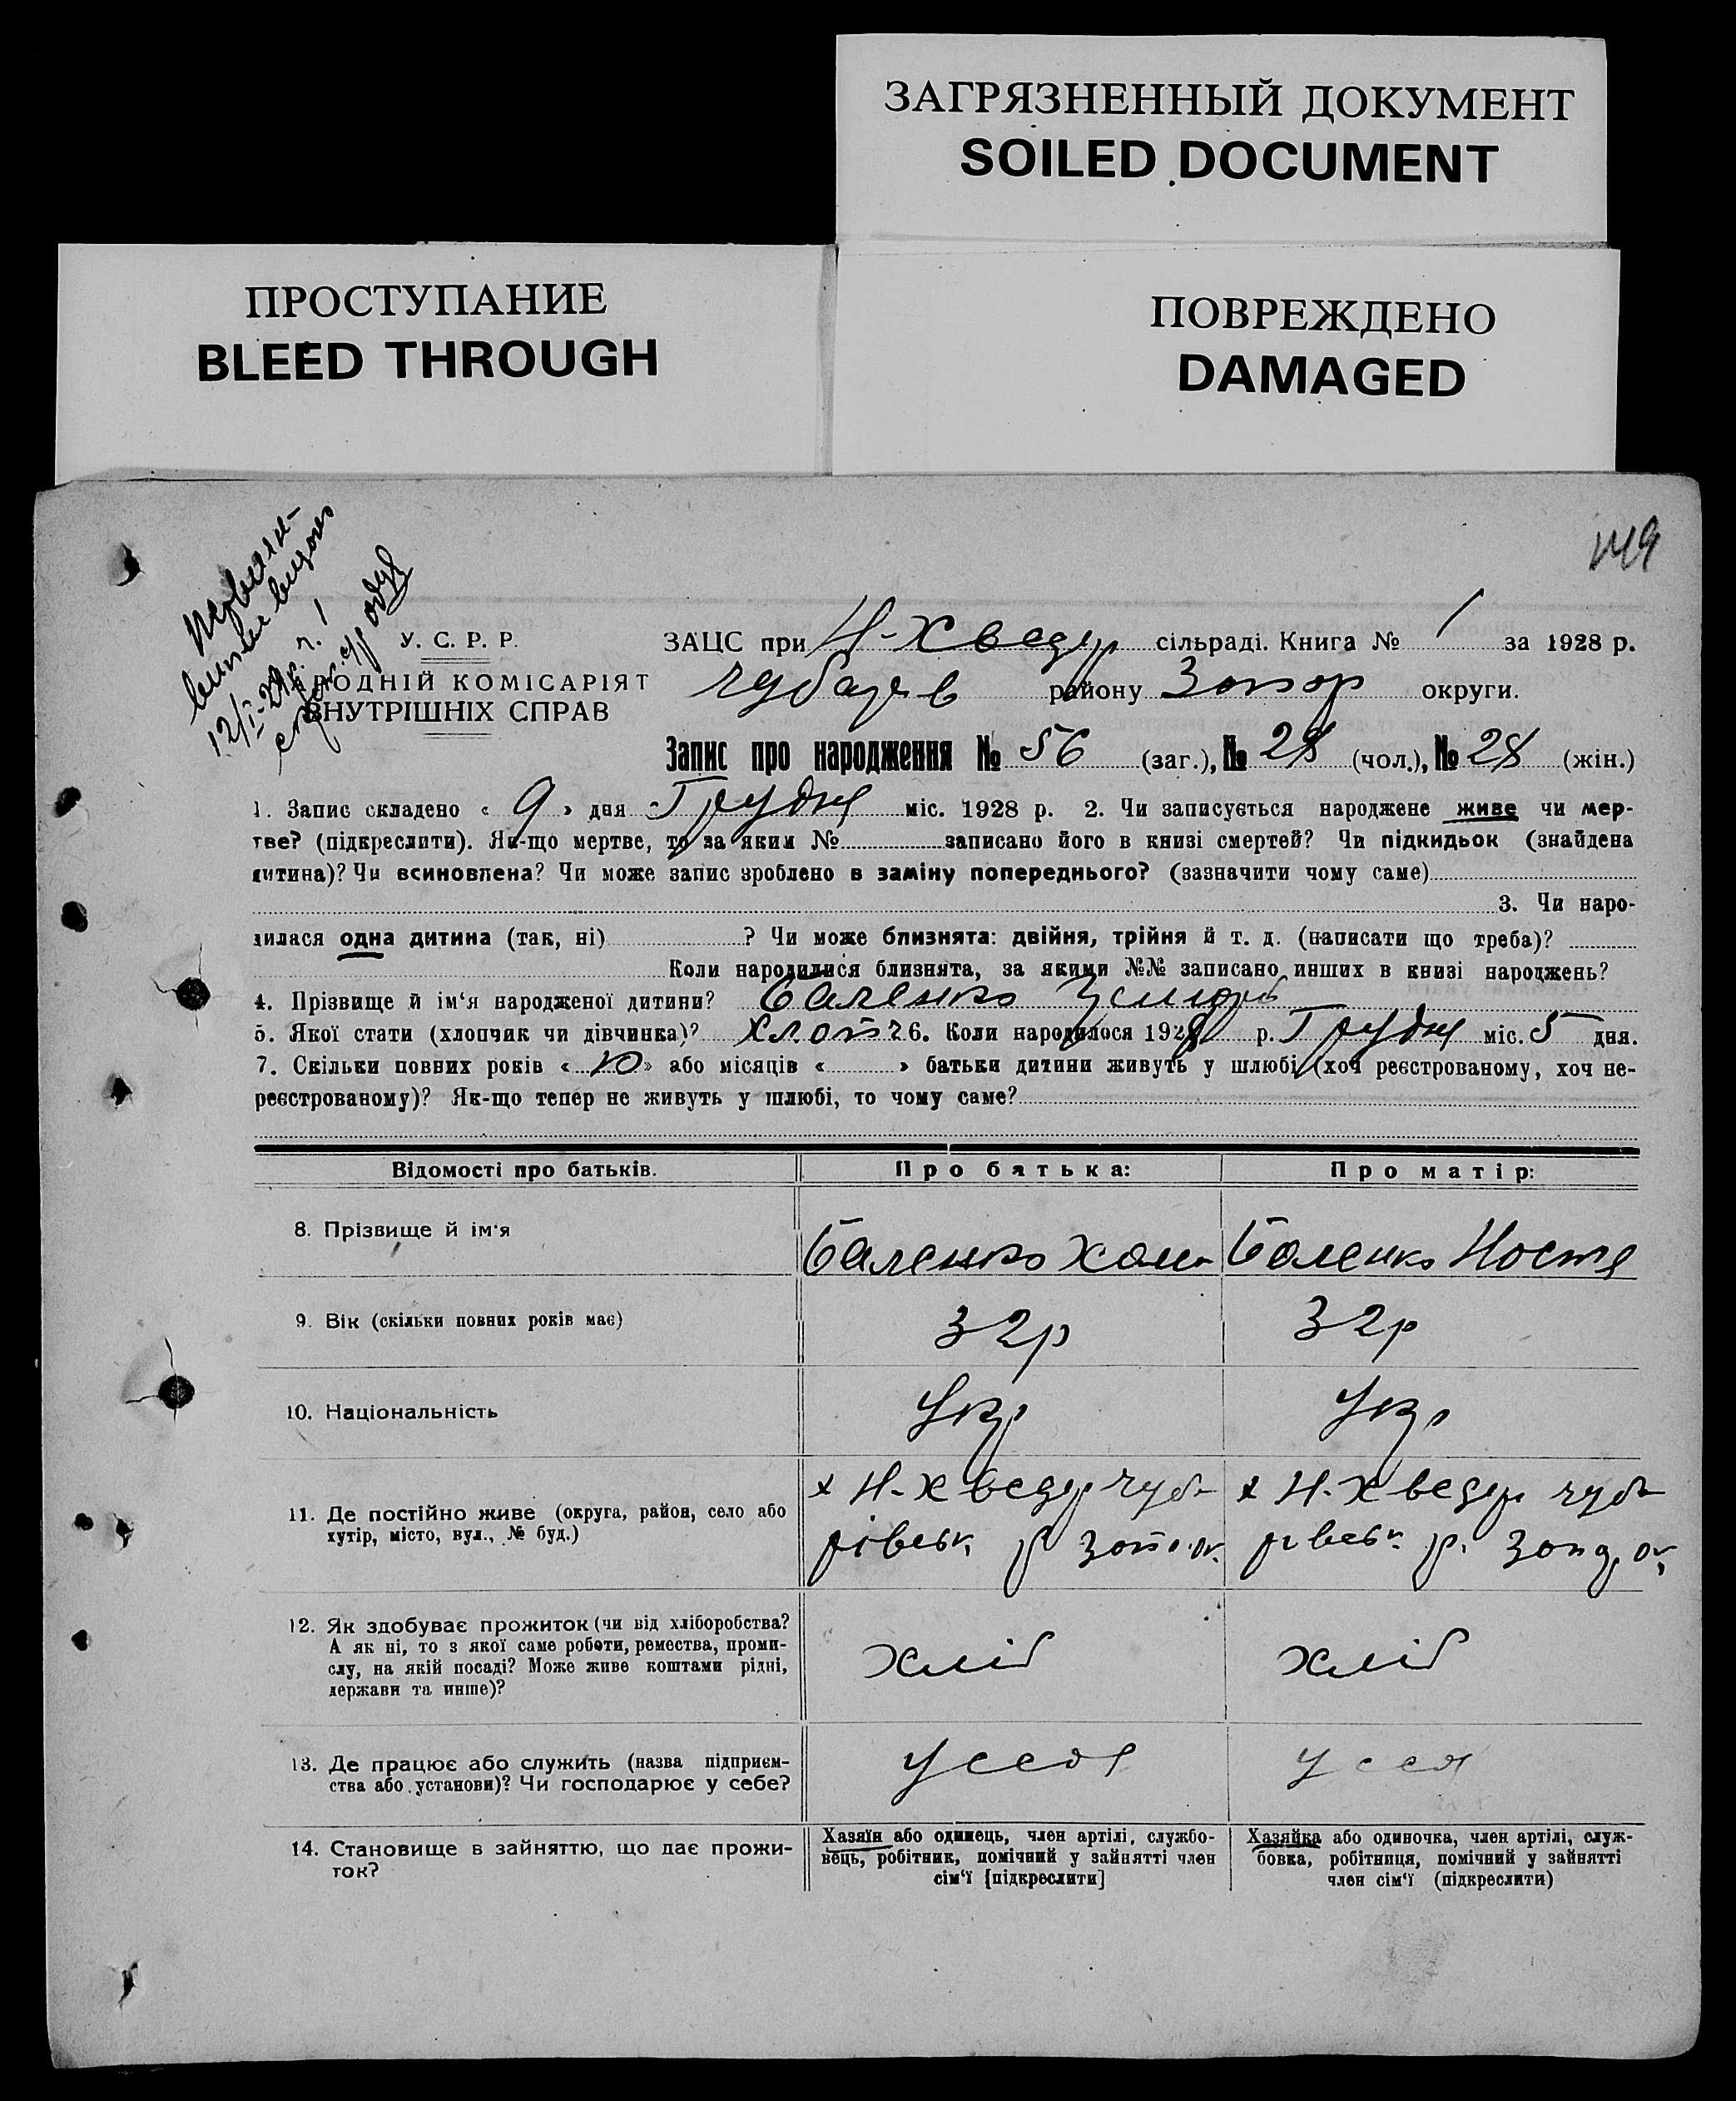 ЗАГРЯЗНЕННЫЙ ДОКУМЕНТ
SOILED DOCUMENT
ПРОСТУПАНИЕ
BLEED THROUGH
ПОВРЕЖДЕНО
DAMAGED
149
12/I-29 р.
У. С. Р. Р.
РОДНІЙ КОМІСАРІЯТ
ВНУТРІШНІХ СПРАВ
ЗАЦС при Н-Хведір сільраді. Книга № 1 за 1928 р.
Чубарів району Запор округи.
Запис про народження № 56 (заг.), № 28 (чол.), № 28 (жін.)
1. Запис складено « 9 » дня Грудня міс. 1928 р. 2. Чи записується народжене живе чи мер-
тве? (підкреслити). Як-що мертве, то за яким № записано його в книзі смертей? Чи підкидьок (знайдена
дитина)? Чи всиновлена? Чи може запис зроблено в заміну попереднього? (зазначити чому саме)
3. Чи наро-
дилася одна дитина (так, ні) ? Чи може близнята: двійня, трійня й т. д. (написати що треба)?
Коли народилися близнята, за якими №№ записано инших в книзі народжень?
4. Прізвище й ім'я народженої дитини? Баленко
5. Якої стати (хлопчик чи дівчинка)? Хлопч 6. Коли народилося 1928 р. Грудня міс. 5 дня.
7. Скільки повних років « 10 » або місяців « » батьки дитини живуть у шлюбі (хоч реєстрованому, хоч не-
реєстрованому)? Як-що тепер не живуть у шлюбі, то чому саме?
Відомості про батьків. Про батька: Про матір:
8. Прізвище й ім'я Баленко Хома Баленко Настя
9. Вік (скільки повних років має) 32р 32р
10. Національність Укр Укр
11. Де постійно живе (округа, район, село або
хутір, місто, вул., № буд.)
х Н-Хведір Чуба х Н-Хведір Чуба
рівськ. р Запо.ок. рівськ. р. Запор, ок,
12. Як здобуває прожиток (чи від хліборобства?
А як ні, то з якої саме роботи, ремества, проми-
слу, на якій посаді? Може живе коштами рідні,
держави та инше)?
Хліб Хліб
13. Де працює або служить (назва підприєм-
ства або установи)? Чи господарює у себе?
У себя У себя
14. Становище в зайняттю, що дає прожи-
ток?
Хазяїн або одинець, член артілі, службо-
вець, робітник, помічний у зайнятті член
сім'ї [підкреслити]
Хазяйка або одиночка, член артілі, служ-
бовка, робітниця, помічний у зайнятті
член сім'ї (підкреслити)